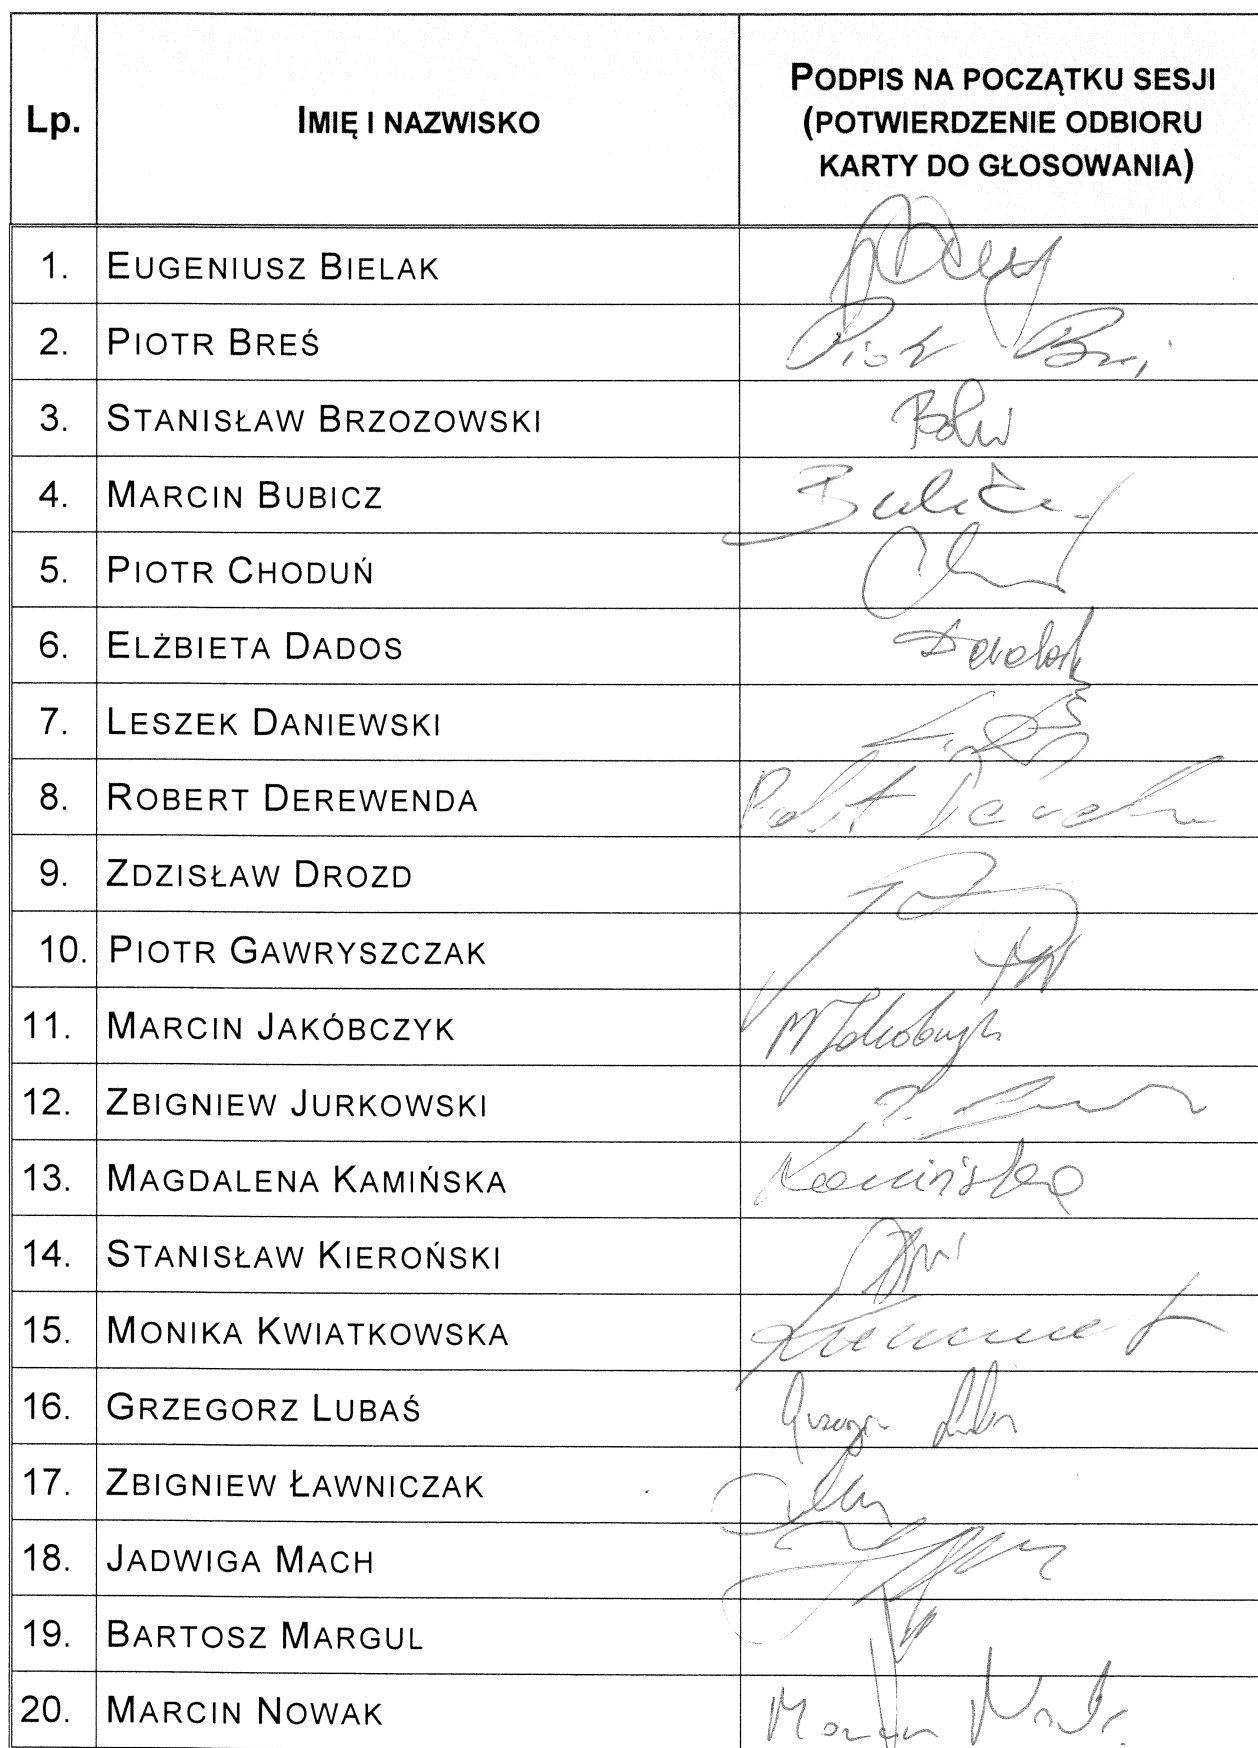 Lp.
IMIĘ I NAZWISKO
PODPIS NA POCZĄTKU SESJI
(POTWIERDZENIE ODBIORU
KARTY DO GŁOSOWANIA)
1. EUGENIUSZ BIELAK
2. PIOTR BREŚ Piotr
3. STANISŁAW BRZOZOWSKI
4. MARCIN BUBICZ
5. PIOTR CHODUŃ
6. ELŻBIETA DADOS
7. LESZEK DANIEWSKI
8. ROBERT DEREWENDA
9. ZDZISŁAW DROZD
10. PIOTR GAWRYSZCZAK
11. MARCIN JAKÓBCZYK
12. ZBIGNIEW JURKOWSKI
13. MAGDALENA KAMIŃSKA Kamińska
14. STANISŁAW KIEROŃSKI
15. MONIKA KWIATKOWSKA
16. GRZEGORZ LUBAŚ
17. ZBIGNIEW ŁAWNICZAK
18. JADWIGA MACH
19. BARTOSZ MARGUL
20. MARCIN NOWAK